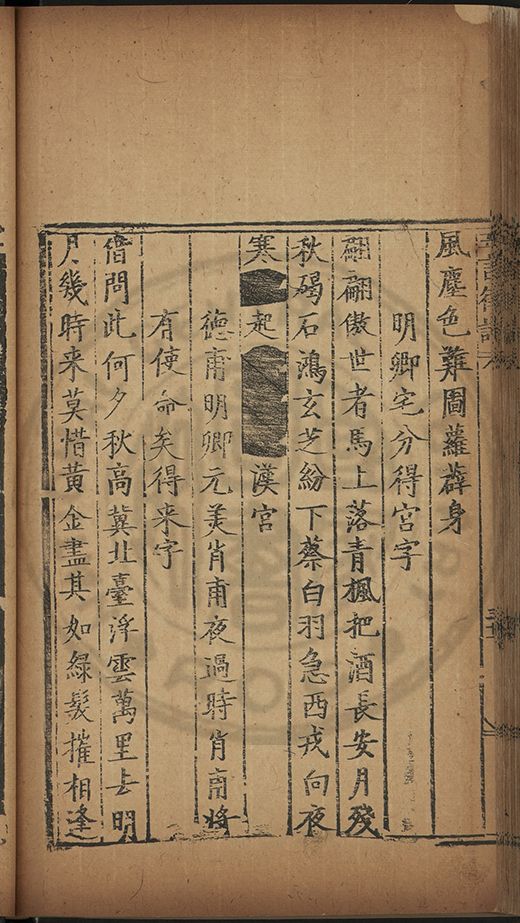 風塵色難圖蘿薜身
明卿宅分得宮字
翩翩傲世者馬上落青楓把酒長安月殘
秋碣石鴻玄芝紛下蔡白羽急西戎向夜
寒起漢宮
德甫明卿元美肖甫夜過時肖甫將
有使命矣得来字
借問此何夕秋高冀北臺浮雲萬里去明
月幾時来莫惜黃金盡其如綠髮摧相逢